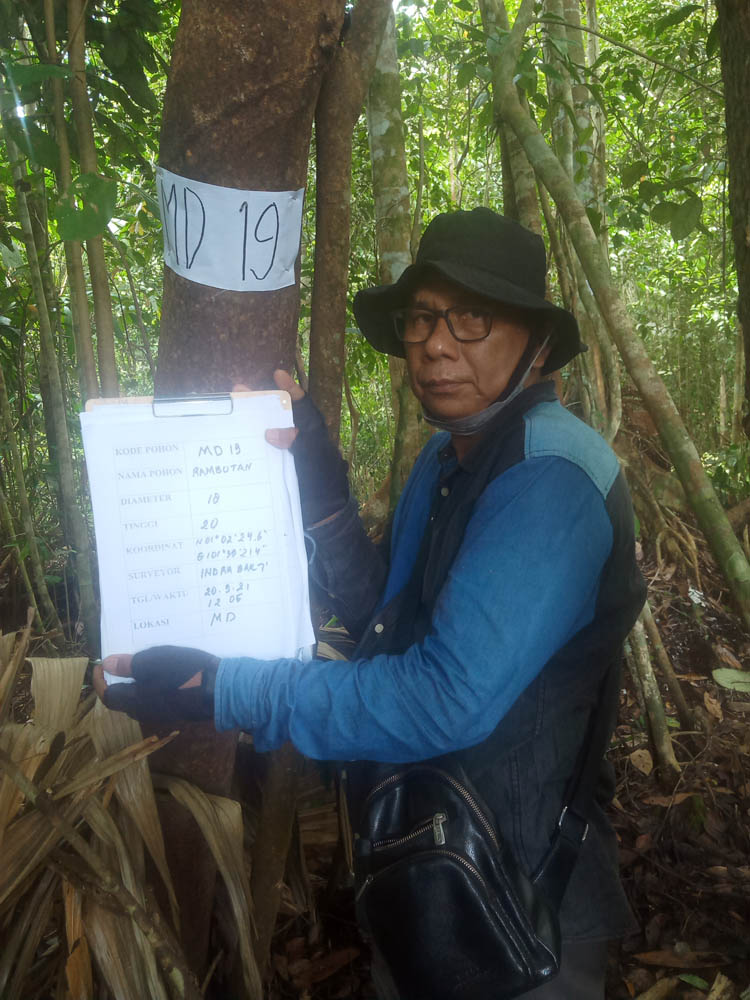 MD 19
KODE POHON MD 19
NAMA POHON RAMBUTAN
DIAMETER 18
TINGGI 20
KOORDINAT N 01° 02' 24.6"
E 101° 39' 21.4"
SURVEYOR INDRA BAKTI
TGL/WAKTU 20.9.21
12 05
LOKASI MD